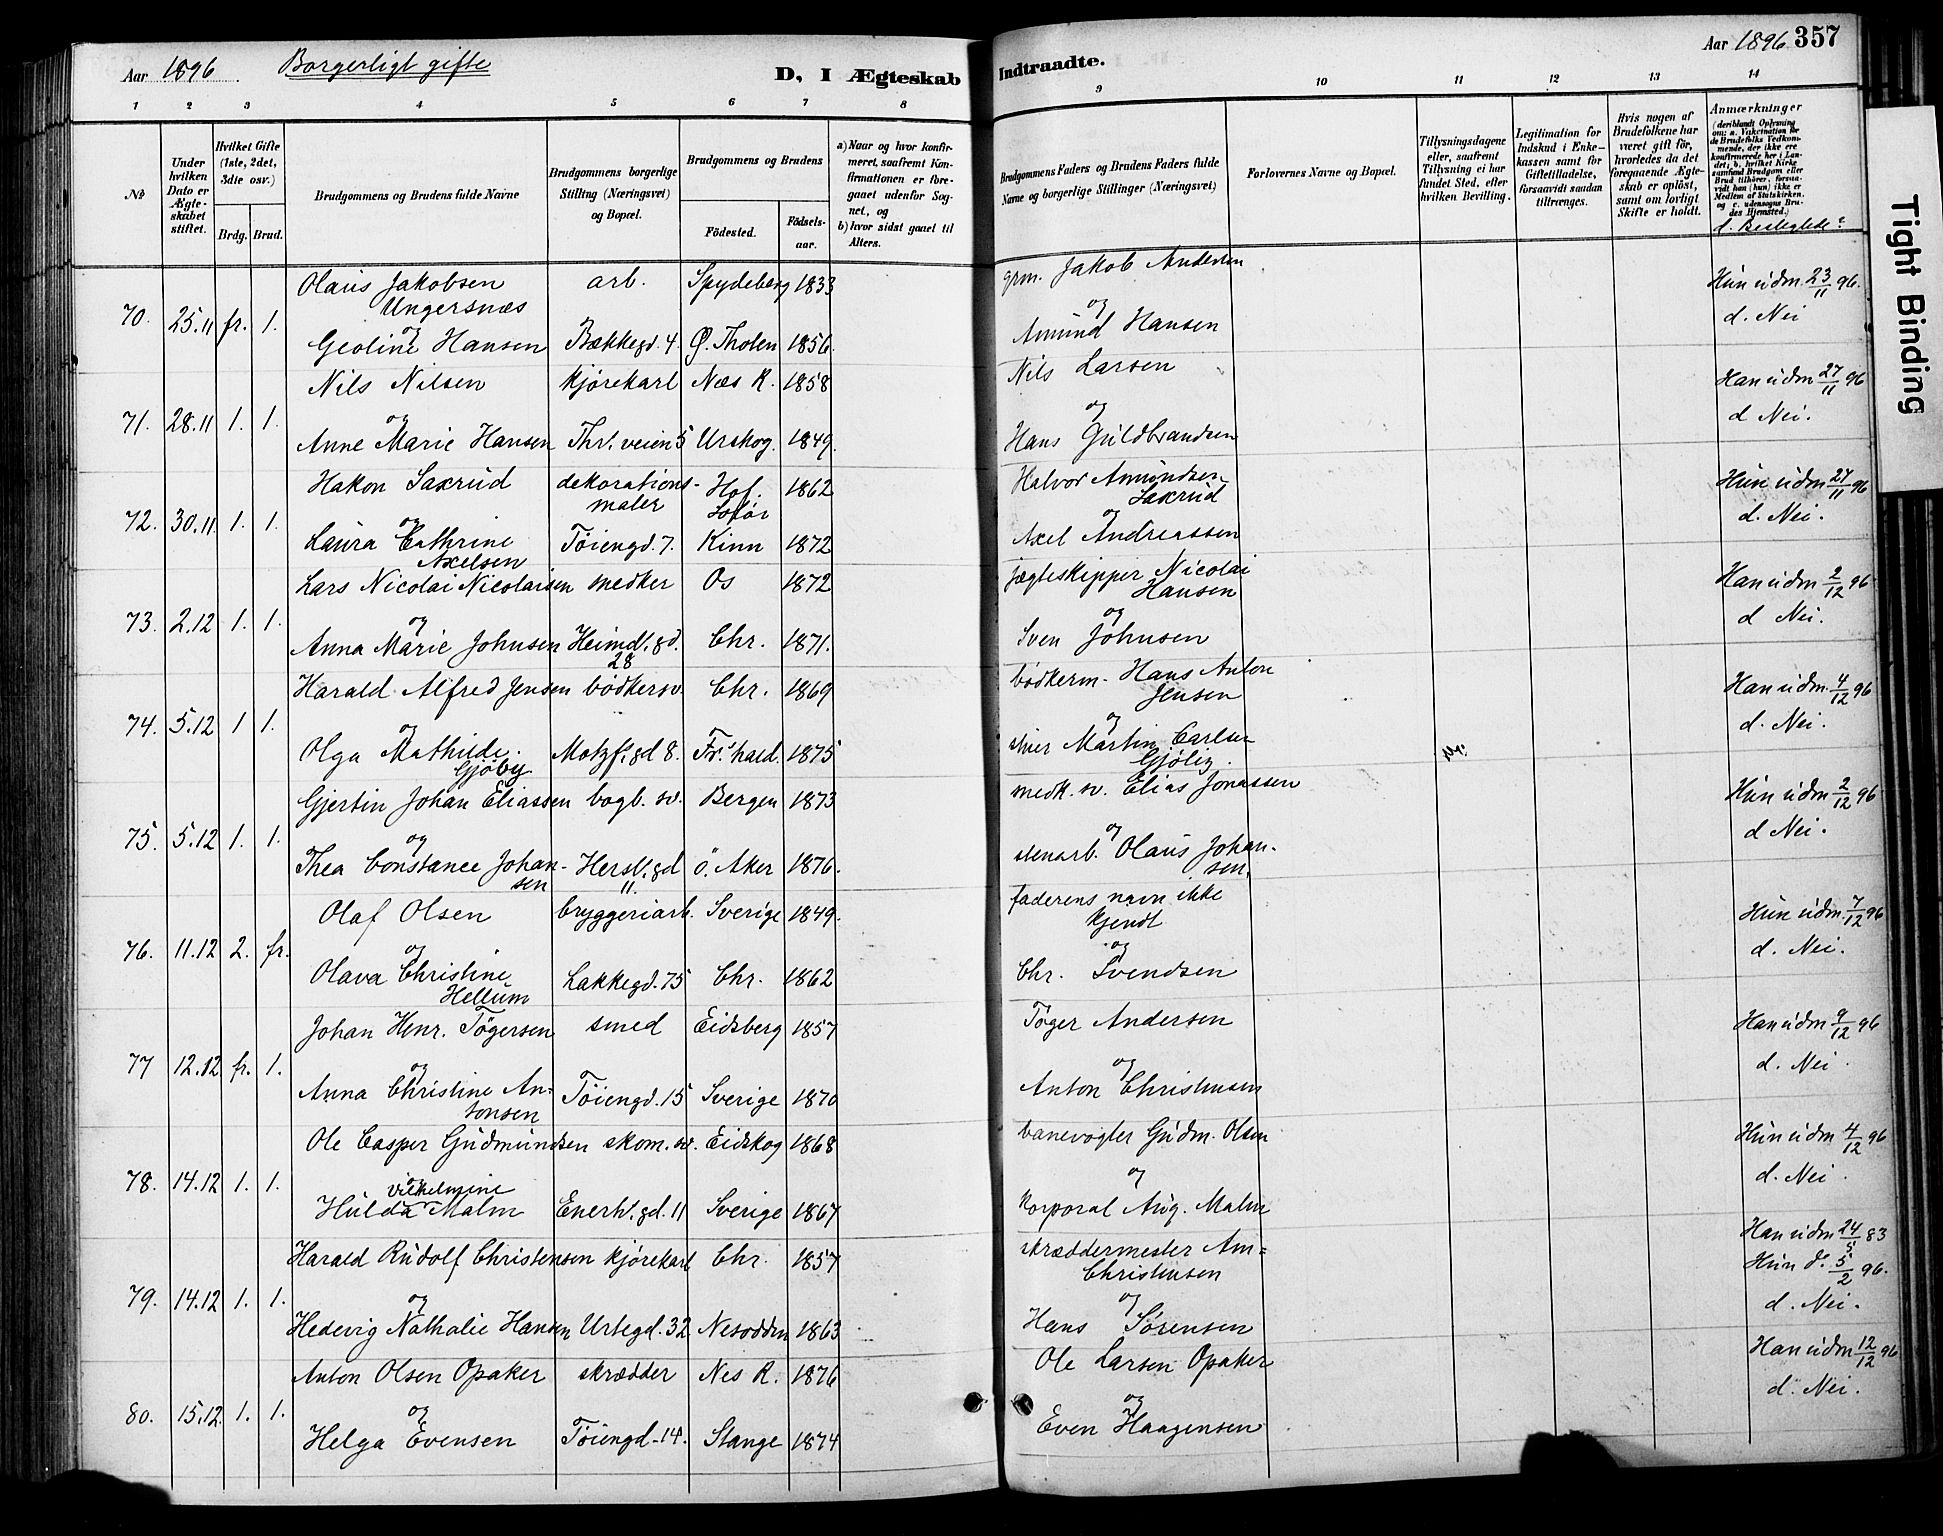 Aar 1896. Borgerligt gifte D, I Ægteskab
Indtraadte. Aar 1896 357
1 2 3 4 5 6 7 8
9 10 11 12 13 14
No
Under hvilken Dato er Ægteskabet stiftet.
Hvilket Gifte (1ste, 2det, 3die osv.)
Brdg. Brud.
Brudgommens og Brudens fulde Navne
Brudgommens borgerlige Stilling (Næringsvei) og Bopæl.
Brudgommens og Brudens
Födested. Födsels-aar.
a) Naar og hvor konfirmeret, saafremt Konfirmationen er foregaaet udenfor Sognet, og
b) hvor sidst gaaet til Alters.
Brudgommens Faders og Brudens Faders fulde Navne og borgerlige Stillinger (Næringsvei)
Forlovernes Navne og Bopæl.
Tillysningsdagene eller, saafremt Tillysning ei har fundet Sted, efter hvilken Bevilling.
Legitimation for Indskud i Enkekassen samt for Giftetilladelse, forsaavidt saadan tiltrænges.
Hvis nogen af Brudefolkene har været gift för, hvorledes da det foregaaende Ægteskab er oplöst, samt om lovligt Skifte er holdt.
Anmærkninger
(deriblandt Oplysning om: a. Vakcination for de Brudefolks Vedkommende, der ikke ere konfirmerede her i Landet; b. hvilket Kirkesamfund Brudgom eller Brud tilhörer, forsaavidt han (hun) ikke er Medlem af Statskirken, og c. udensogns Brudes Hjemsted.)
d. Beslegtede?
Olaus Jakobsen arb. Spydeberg 1833 grm. Jakob Andersen Hun udm. 23/11 96.
Ungersnæs
70. 25.11 fr. 1. og og d. Nei
Geoline Hansen Bækkegd. 4. Ø. Tholen 1856. Amund Hansen
Nils Nilsen kjørekarl Næs R. 1858 Nils Larsen Han udm 27/11 96
71. 28.11 1. 1. og og d Nei.
Anne Marie Hansen Thv. veien 5 Urskog. 1849. Hans Guldbrandsen
Hakon Saxrud dekorations- Hof. 1862 Halvor Amundsen Hun udm 27/11 96
maler Solør Saxrud
72. 30.11. 1. 1. og og d. Nei.
Laura Cathrine Töiengd. 7. Kinn 1872 Axel Andreassen
Axelsen
Lars Nicolai Nicolaisen snedker Os 1872 jægteskipper Nicolai Han udm 2/12 96
Hansen
73. 2.12 1. 1. og og d Nei.
Anna Marie Johnsen Heimd. gd. Chr. 1871. Sven Johnsen
28
Harald Alfred Jensen bödkersv. Chr. 1869 bödkerm. Hans Anton Han udm. 4/12 96
Jensen
74. 5.12 1 1. og og d. Nei.
Olga Mathilde Motzf. gd 8. Fr.'hald. 1875 Martin Carlsen
Gjöby Gjölig.
Gjertin Johan Eliassen bogb. sv. Bergen 1873 snedk. sv. Elias Jonassen Hun udm 2/12 96
75. 5.12 1. 1. og og d Nei.
Thea Constance Johan- Hersl. gd ö. Aker 1876. stenarb. Olaus Johan-
sen 11. sen.
Olaf Olsen bryggeriarb. Sverige 1849. faderens navn ikke Hun udm. 7/12 96
kjendt
76. 11.12 2. fr. og og d. Nei.
Olava Christine Lakkegd. 75 Chr. 1862 Chr. Svendsen
Hellum
Johan Henr. Tögersen smed Eidsberg 1857 Töger Andersen Han udm 9/12 96
77 12.12 fr. 1. og og d. Nei.
Anna Christine An- Töiengd. 15 Sverige 1870 Anton Christensen
tonsen
Ole Casper Gudmundsen skom. sv. Eidskog 1868 banevogter Gudm. Olsen Hun udm 4/12 96
78. 14.12 1. 1. og og d. Nei.
vilhelmine
Hulda Malm Enerh. gd. 11 Sverige 1867 Korporal Aug. Malm
Harald Rudolf Christensen kjørekarl Chr. 1857 skræddermester Am= Han udm 24/5 83
Christensen Hun do 5/2 96.
79. 14.12 1. 1. og og d. Nei.
Hedevig Nathalie Hansen Urtegd. 32 Nesodden 1863 Hans Sörensen
Anton Olsen Opaker skrædder Nes R. 1876 Ole Larsen Opaker Han udm 12/12 96
80. 15.12. 1. 1. og og d. Nei.
Helga Evensen Töiengd. 14. Stange 1874 Even Haagensen
Tight Binding